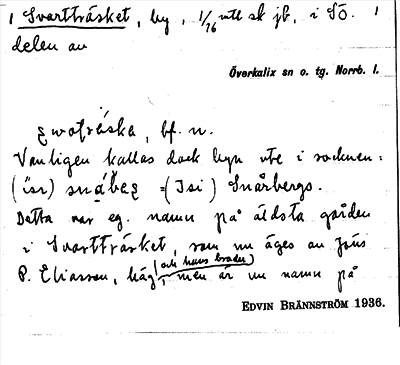 1 Svartträsket, by, 1/16 mtl sk jb, i SO. 1
delen av
Överkalix sn o. tg. Norrb. l.
bf. n.
Vanligen kallas dock byn ute i socknen:
(isi) =(Isi) Snårbergs.
Detta var eg. namn på äldsta gården
i Svartträsket, som nu äges av Jöns
(och hans broder)
P. Eliasson, men är nu namn på
EDVIN BRÄNNSTRÖM 1936.